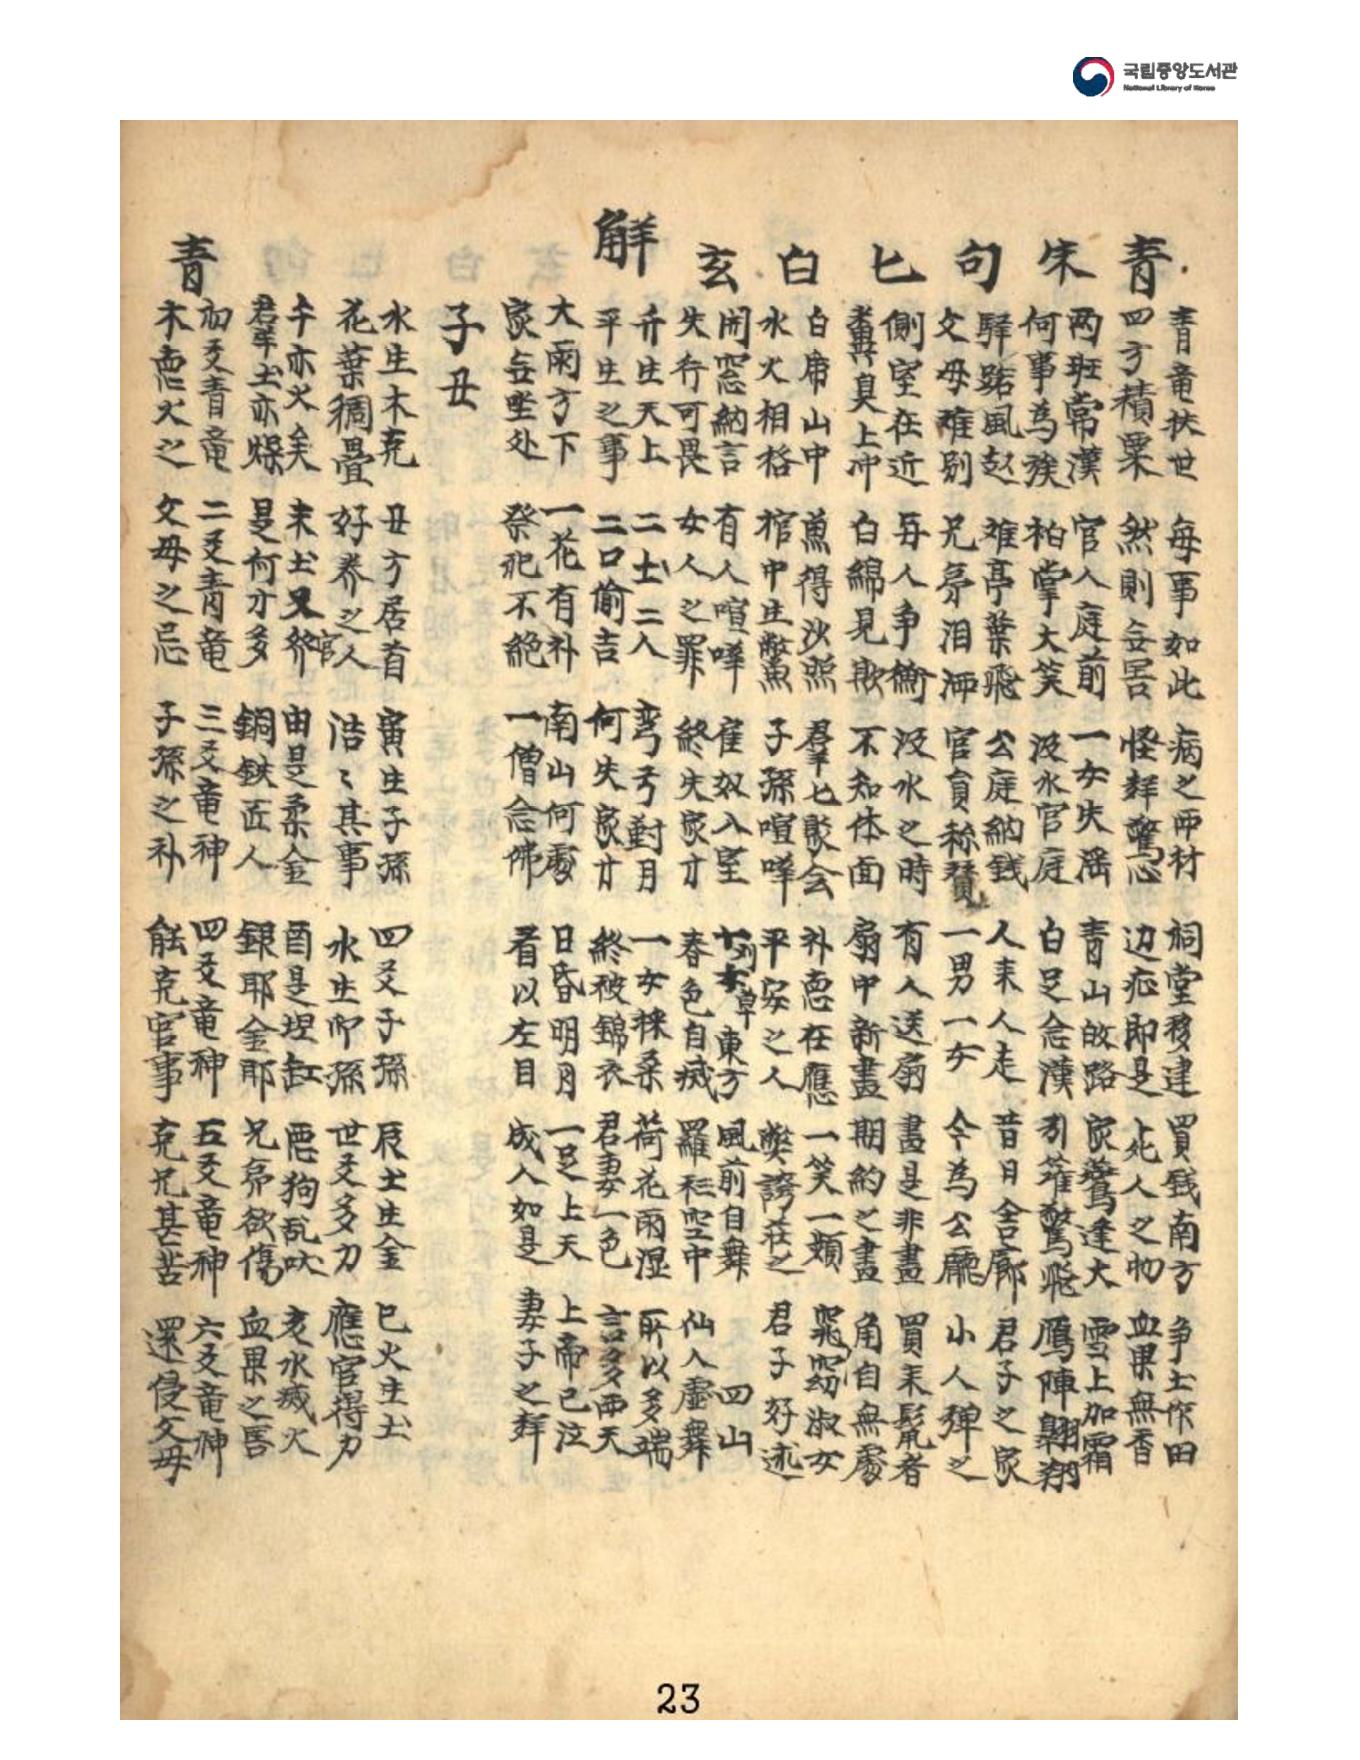 국립중앙도서관
National Library of Korea
青
青竜扶世 每事如此 病之两材 祠堂移建 買銭南方 争土作田
四方積粟 然則無害 怪群驚心 边疟即是 上死人之物 血果無香
朱
两班常漢 官人庭前 一女失淫 青山故路 家鶯逢犬 雪上加霜
何事為族 拍掌大笑 汲水官庭 白足念漢 引雉驚飛 鴈陣翺翔
句
驛路風起 难亭葉飛 公庭納銭 人来人走 昔日舍廊 君子之家
父母难别 兄弟泪洒 官員称賛 一男一女 今為公廳 小人殫之
匕
側室在近 每人争 汲水之時 有人送扇 畵是非畵 買来髡者
糞臭上冲 白綿見欺 不知体面 扇中新畵 期約之畵 角自無處
白
白席山中 魚得沙照 羣匕聚会 朴悳在應 一笑一頻 窕窈淑女
水火相格 棺中生鱉魚 子孫喧嘩 平安之人 弊誇莊之 君子好逑
玄
開窓納言 有人喧嘩 雇奴入室 東方 風前自舞 四山
失行可畏 女人之罪 終失家才 春色自滅 羅衫空中 仙人虚舞
解
升生天上 二士二人 弯弓對月 一女採桑 荷花雨湿 所以多端
平生之事 二口偷吉 何失家才 終被錦衣 君妻一色 言多两天
大雨方下 一花有朴 南山何處 日昏明月 一足上天 上帝已泣
家無坐处 祭祀不絶 一僧念佛 看以左目 成人如是 妻子之群
子丑
水生木克 丑方居首 寅生子孫 四爻子孫 辰土生金 巳火生土
花葉稠畳 好养之官人 浩〻其事 水生卯孫 世爻多力 應官得力
午亦火矣 未土又 由是柔金 酉是埋缸 悪狗乱吠 亥水滅火
君羊土亦燥 是何才多 銅鉄匠人 銀耶金耶 兄弟欲傷 血果之害
青
初爻青竜 二爻青竜 三爻竜神 四爻竜神 五爻竜神 六爻竜神
木悳火之 父母之忌 子孫之朴 能克官事 克兄甚苦 還侵父母
23